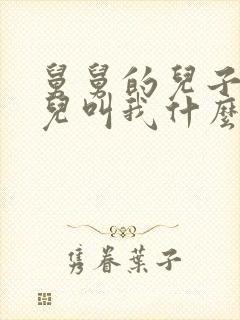 舅舅的兒子
兒叫我什麼
隻眷葉子